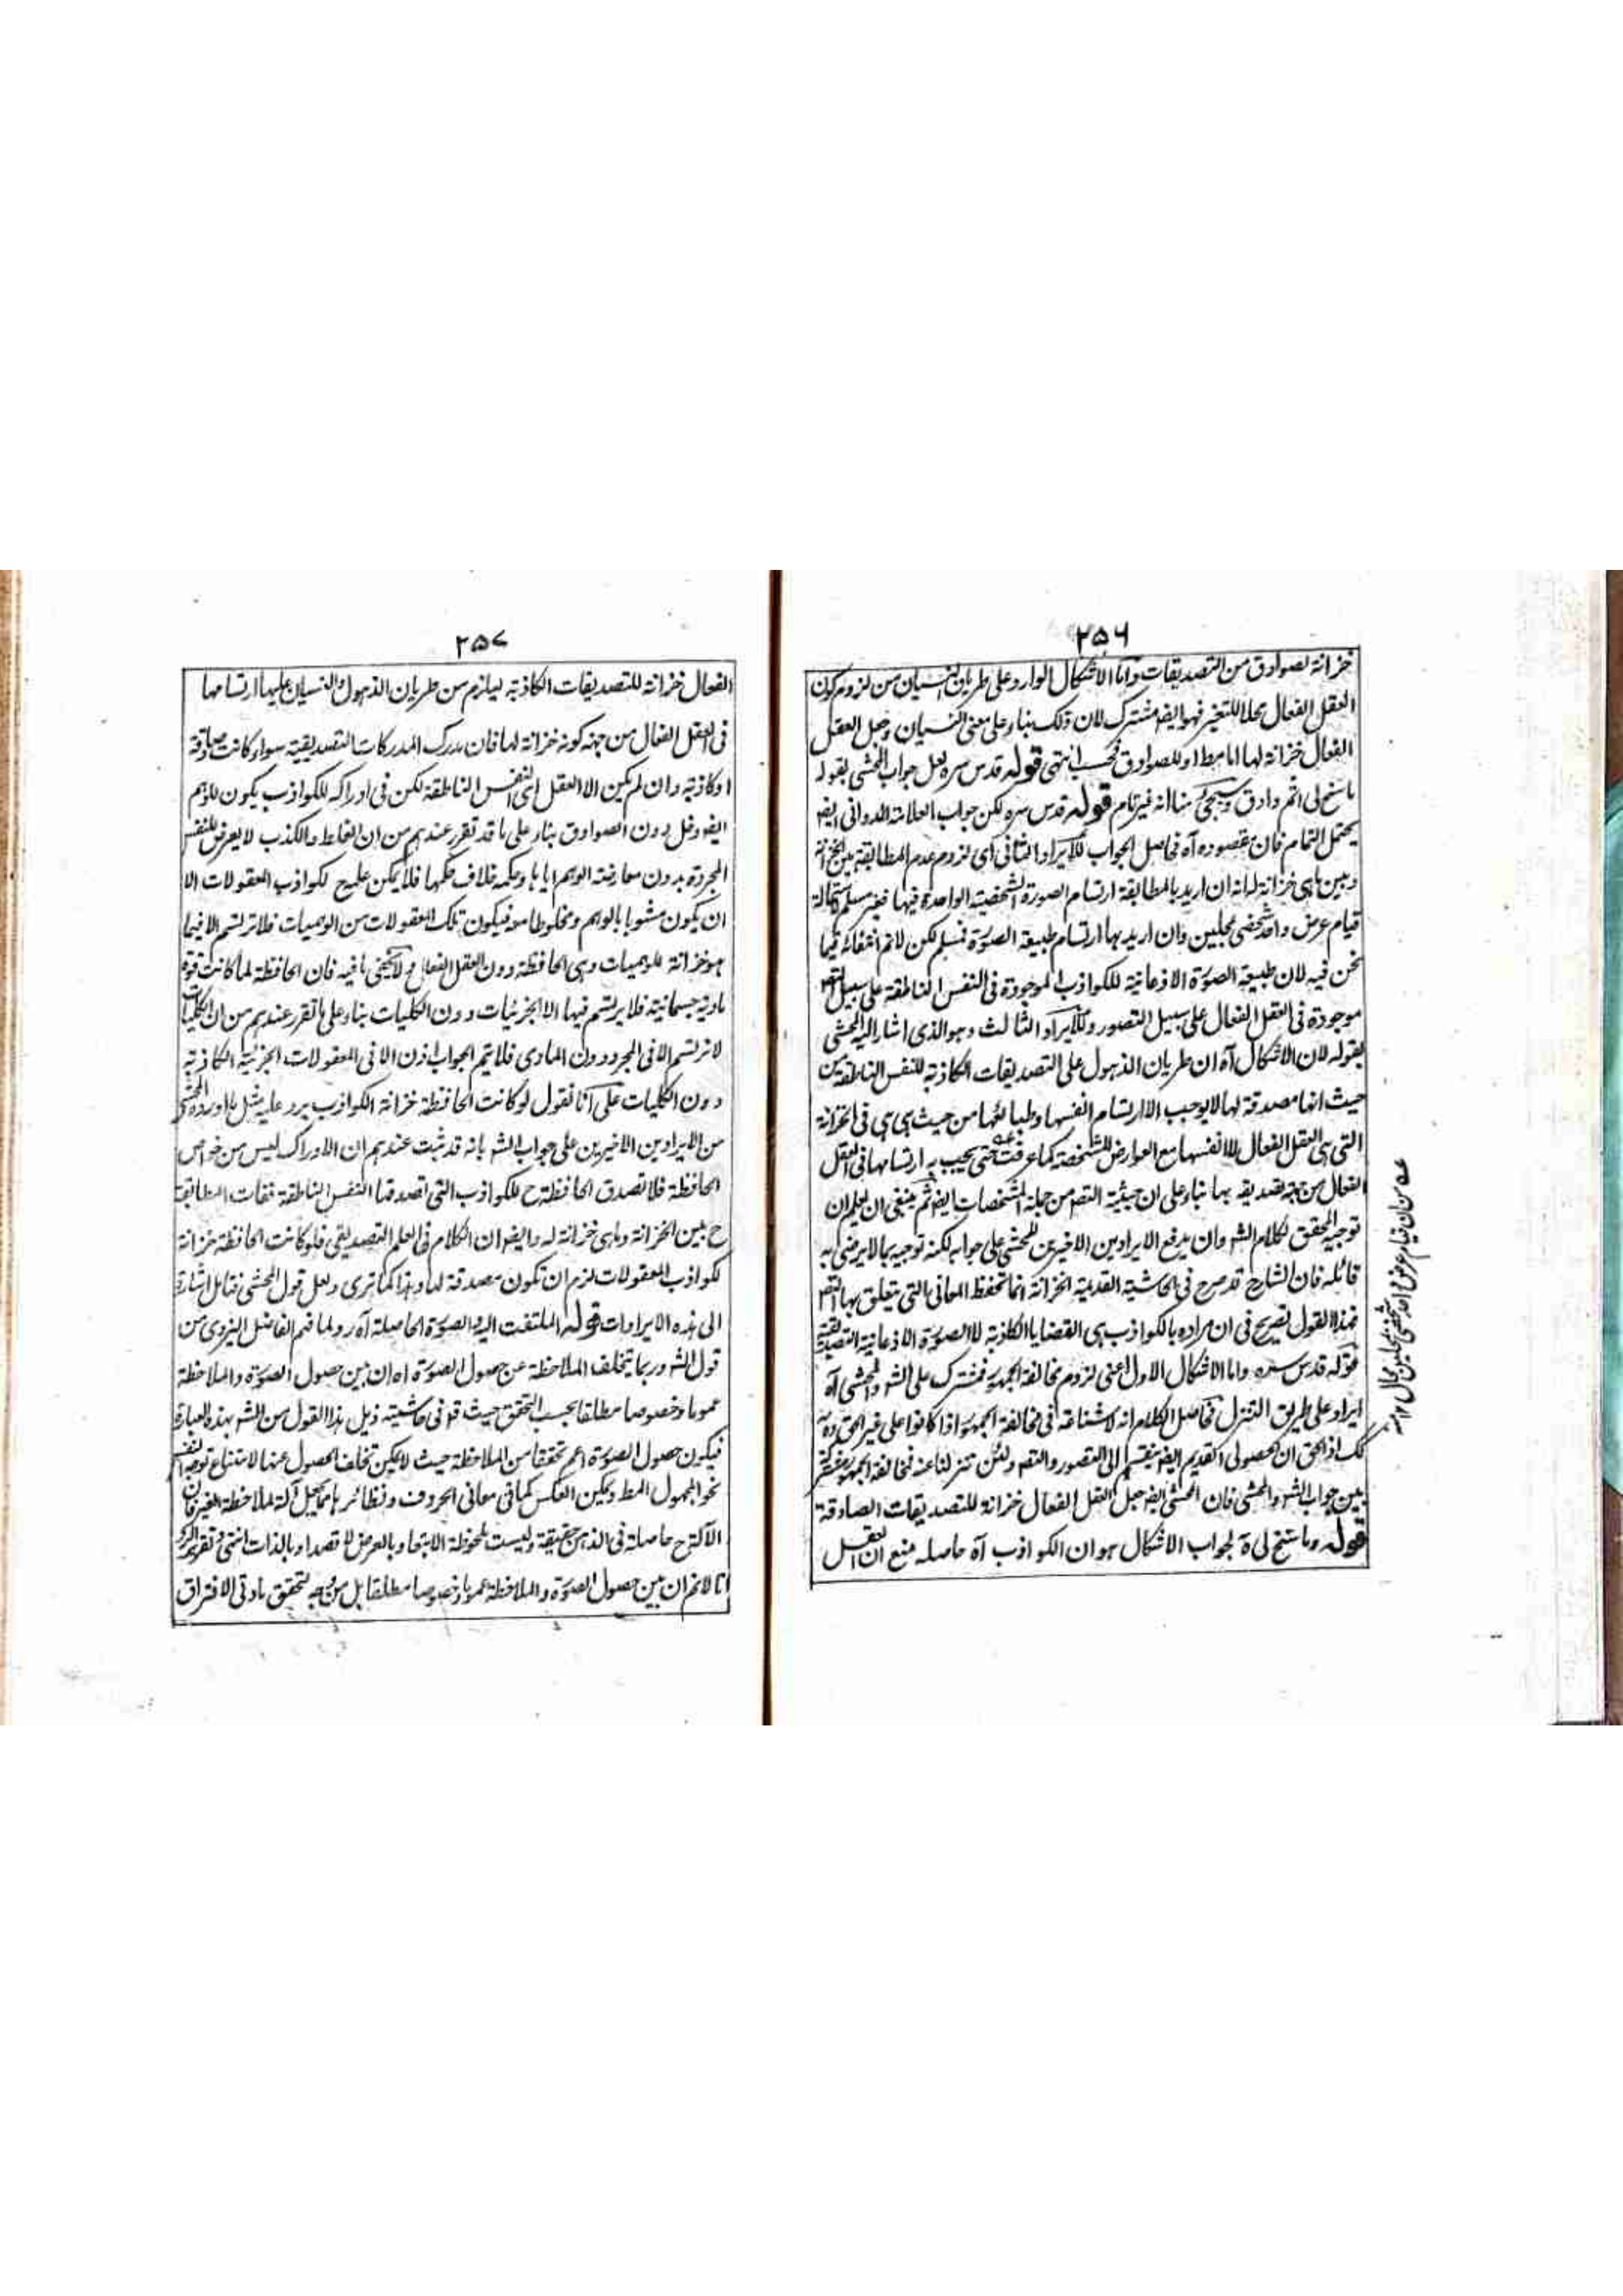 ٢٥٦
خزانة لصوادق من التصديقات واما الاشكال الوارد على طريان النسيان من لزوم كون
العقل الفعال محلا للتغير فهو ايضه مشترك لان ذلك بناء على معنى النسيان وجعل العقل
الفعال خزانة لها اما مطا او للصوادق فحسب انتهى قوله قدس سره لعل جواب المحشى بقوله
ما سنح لى اتم وادق وسيجئ منا انه غير تام قوله قدس سره لكن جواب العلامة الدوانى ايضه
يحتمل التمام فان مقصوده آه فحاصل الجواب للايراد الثانى اى لزوم عدم المطابقة بين الخزانة
وبين ماهى خزانة له انه ان اريد بالمطابقة ارتسام الصورة الشخصية الواحدة فيها فغير مسلم لاستحالة
قيام عرض واحد شخصى بمحلين وان اريد بها ارتسام طبيعة الصورة فمسلم لكن لانم انتفائه فيما
نحن فيه لان طبيعة الصورة الاذعانية للكواذب الموجودة فى النفس الناطقة على سبيل التصه
موجودة فى العقل الفعال على سبيل التصور وللايراد الثالث وهو الذى اشار اليه المحشى
بقوله لان الاشكال آه ان طريان الذهول على التصديقات الكاذبة للنفس الناطقة من
حيث انها مصدقة لها لا يوجب الا ارتسام انفسها وطبائعها من حيث هى هى فى الخزانة
التى هى العقل الفعال لا انفسها مع العوارض المشخصة كما عرفت حتى يجيب به ارتسامها فى العقل
الفعال من جهة تصديقه بها بناء على ان حيثية التصه من جملة المشخصات ايضه ثم ينبغى ان يعلم ان
توجيه المحقق لكلام الشه وان يدفع الايرادين الاخيرين للمحشى على جوابه لكنه توجيه بما لا يرضى به
قائله فان الشارح قد صرح فى الحاشية القديمة الخزانة انما تحفظ المعانى التى يتعلق بها التصه
فهذا القول تصريح فى ان مراده بالكواذب هى القضايا الكاذبة لا الصورة الاذعانية التصديقية
قوله قدس سره واما الاشكال الاول اعنى لزوم مخالفة الجمهور فمشترك على الشه والمحشى آه
ايراد على طريق التنزل فحاصل الكلام انه لا شناعة فى مخالفة الجمهور اذا كانوا على غير الحق وه
كك اذ الحق ان الحصولى القديم ايضه ينقسم الى التصور والتصه ولئن تنزلنا عنه فمخالفة الجمهور مشترك
بين جواب الشه والمحشى فان المحشى ايضه جعل العقل الفعال خزانة للتصديقات الصادقة
قوله وما سنح لى آه لجواب الاشكال هو ان الكواذب آه حاصله منع ان العقل
عه من ان قيام عرض واحد شخصى بمحلين محال ١٢ منه
٢٥٧
الفعال خزانة للتصديقات الكاذبة ليلزم من طريان الذهول والنسيان عليها ارتسامها
فى العقل الفعال من جهة كونه خزانة لها فان مدرك المدركات التصديقية سواء كانت صادقة
او كاذبة وان لم يكن الا العقل اى النفس الناطقة لكن فى ادراكه للكواذب يكون للوهم
ايضه دخل دون الصوادق بناء على ما قد تقرر عندهم من ان الغلط والكذب لا يعرض للنفس
المجردة بدون معارضة الوهم اياها وحكمه خلاف حكمها فلا يمكن عليهح لكواذب المعقولات الا
ان يكون مشوبا بالوهم ومخلوطا معه فيكون تلك المعقولات من الوهميات فلا ترتسم الا فيما
هو خزانة للوهميات وهى الحافظة دون العقل الفعال ولا يخفى ما فيه فان الحافظة لما كانت قوة
مادية جسمانية فلا يرتسم فيها الا الجزئيات دون الكليات بناء على ما تقرر عندهم من ان الكليات
لا ترتسم الا فى المجرد دون المادى فلا يتم الجواب اذن الا فى المعقولات الجزئية الكاذبة
دون الكليات على انا نقول لو كانت الحافظة خزانة الكواذب يرد عليه مثل ما اورده المحشى
من الايرادين الاخيرين على جواب الشه بانه قد ثبت عندهم ان الادراك ليس من خواص
الحافظة فلا تصدق الحافظة ح للكواذب التى تصدقها النفس الناطقة ففات المطابقة
ح بين الخزانة وماهى خزانة له وايضه ان الكلام فى العلم التصديقى فلو كانت الحافظة خزانة
لكواذب المعقولات لزم ان تكون مصدقة لها وهذا كما ترى ولعل قول المحشى فتامل اشارة
الى هذه الايرادات قوله الملتفت اليه الصورة الحاصلة آه رد لما فهم الفاضل اليزدى من
قول الشه وربما يتخلف الملاحظة عن حصول الصورة اه ان بين حصول الصورة والملاحظة
عموما وخصوصا مطلقا بحسب التحقق حيث قه فى حاشيته ذيل هذا القول من الشه بهذه العبارة
فيكون حصول الصورة اعم تحققا من الملاحظة حيث لا يمكن تخلف الحصول عنها لامتناع توجه النفس
نحو المجهول المطه ويمكن العكس كما فى معانى الحروف ونظائرها مما يجعل آلة لملاحظة الغير فان
الآلة ح حاصلة فى الذهن حقيقة وليست بملحوظة الا تبعا وبالعرض لا قصدا وبالذات انتهى وتقرير الرد
انا لانم ان بين حصول الصورة والملاحظة عموما وخصوصا مطلقا بل من وجه لتحقق مادتى الافتراق